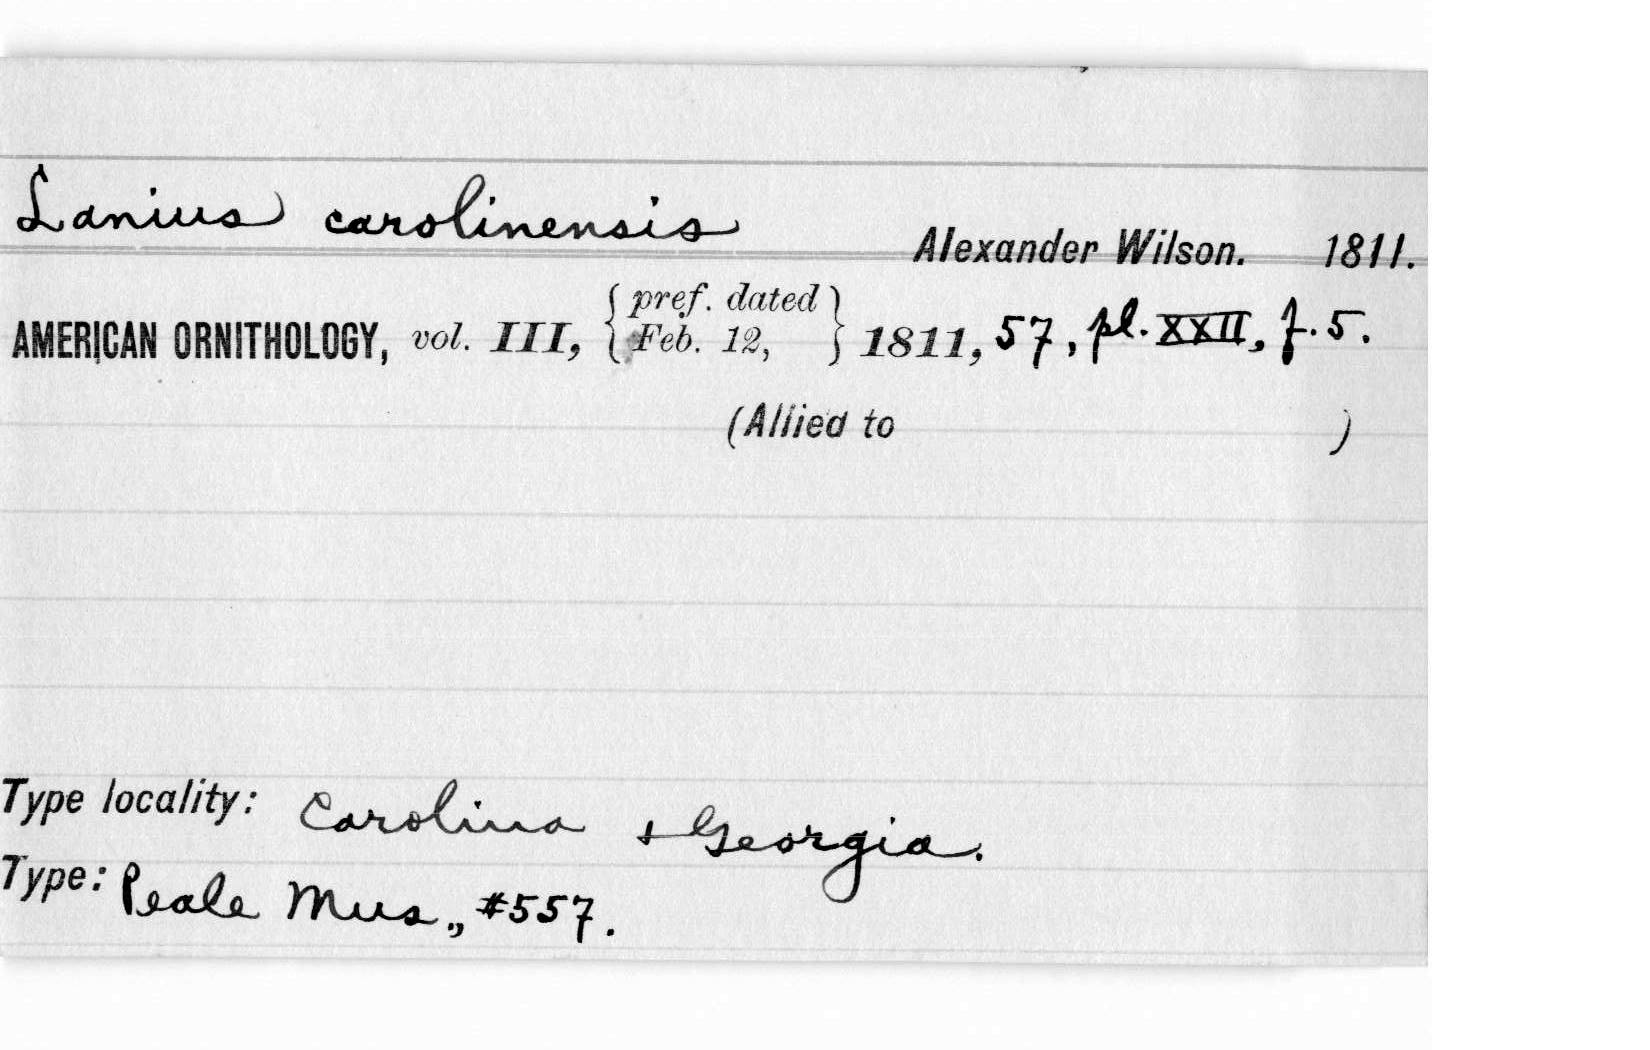 Lanius carolinensis
Alexander Wilson. 1811.
AMERICAN ORNITHOLOGY, vol. III, { pref. dated Feb. 12, } 1811, 57, pl. XXII, f. 5.
(Allied to )
Type locality: Carolina + Georgia.
Type: Peale Mus., #557.